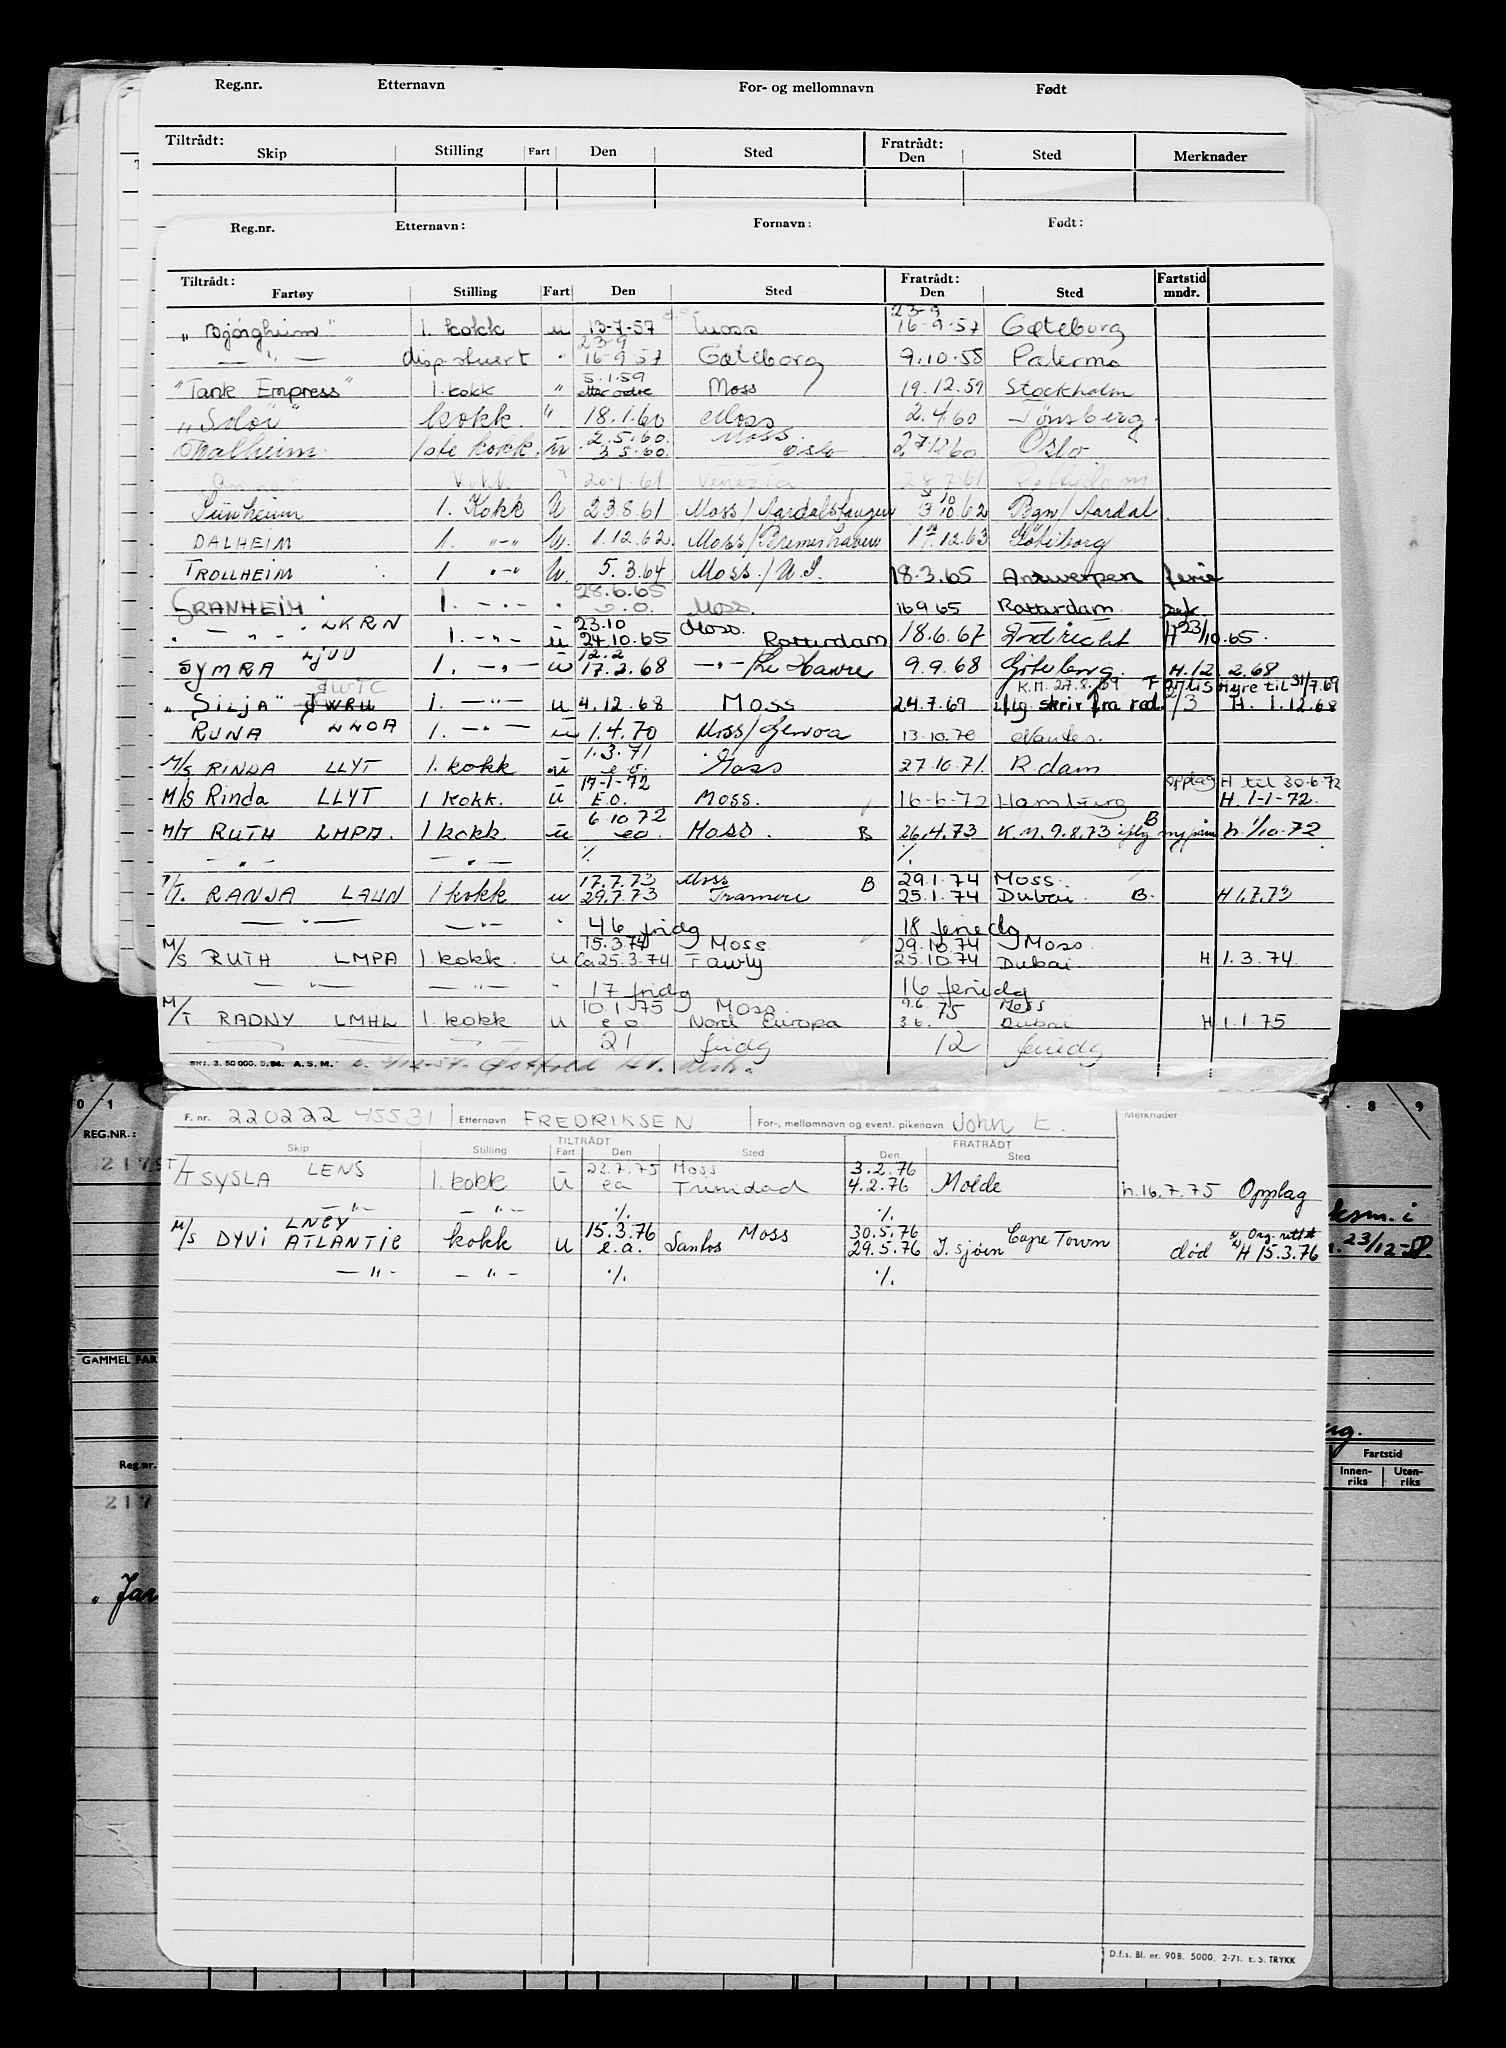 Reg.nr. Etternavn For- og mellomnavn Født
Tiltrådt: Fratrådt:
Skip Stilling Fart Den Sted Den Sted Merknader
Reg.nr. Etternavn: Fornavn: Født:
Tiltrådt: Fratrådt: Fartstid
Fartøy Stilling Fart Den Sted Den Sted mndr.
23-9
"Bjørgheim" 1. kokk u 13-7-57 Moss 16-9-57 Gøteborg
23-9
— " — disp. stuert " 16-9-57 Gøteborg 9.10.58 Palermo
5.1.59
"Tank Empress" 1. kokk " etter ordre Moss 19.12.59 Stockholm
"Soløi" kokk " 18.1.60 Moss 2.4.60 Tønsberg
2.5.60. Moss
Dalheim 1ste kokk. u 3.5.60. Oslo 27.12.60 Oslo
kokk 20.1.61 Venezia 28.7.61 Rotterdam
10
Sunheim 1. Kokk U 23.8.61 Moss/Aardalstangen 3/10.62 Bgn/Aardal
DALHEIM 1. "-" U. 1.12.62. Moss/Bremerhaven 17.12.63 Göteborg
TROLLHEIM 1 "-" U. 5.3.64 Moss/U.S. 18.3.65 Antwerpen ferie
28.6.65
GRANHEIM 1. -"- " e.o. Moss. 16965 Rotterdam
23.10 Moss.
" — " — LKRN 1. -"- u 24.10.65 Rotterdam 18.6.67 H 23/10.65.
12.2
SYMRA LJUU 1. -"- u 17.2.68 -"-/Le Havre 9.9.68 Göteborg H.12 2.68
JWTC K.M. 27.8.69 Hyre til 31/7.69
"SILJA" JWRU 1. -"- u 4.12.68 Moss 24.7.69 iflg skriv fra red. H. 1.12.68
RUNA LLOA 1. -"- u 1.4.70 Moss/Genova 13.10.70 Nantes.
1.3.71
M/S RINDA LLYT 1. kokk u e.o. Moss 27.10.71. R.dam
17-1-72 opplag H til 30-6-72
M/S Rinda LLYT 1 kokk. u E.O. Moss. 16-6-72 Hamburg H. 1-1-72.
6.10.72 B
M/T RUTH LMPA. 1 kokk. u eo Moss. B 26.4.73 K.M. 9.8.73 iflg h. 1/10-72
- " - - " - % %
17.7.73 Moss 29.1.74 Moss.
T/T. RANJA LAUN 1 kokk u 29.7.73 Tranmere B 25.1.74 Dubai B. H 1.7.73
— " — — " — " 46 fridg 18 feriedg
15.3.74 Moss 29.10.74 Moss.
M/S RUTH LMPA 1. kokk. u Ca 25.3.74 Fawly 25.10.74 Dubai H 1.3.74
— " — — " — " 17 fridg 16 feriedg
10.1.75 Moss. 9.6.75 Moss
M/T RADNY LMHL 1. kokk u e o Nord Europa 3.6. Dubai H 1.1.75
21 fridg 12 feriedg
BHI. 3. 50 000. 5.54. A.S.M.
F. nr. 220222 45531 Etternavn FREDRIKSEN For-, mellomnavn og event. pikenavn John E. Merknader
TILTRÅDT FRATRÅDT
Skip Stilling Fart Den Sted Den Sted
22.7.75 Moss 3.2.76
T/T SYSLA LENS 1. kokk u ea Trinidad 4.2.76 Molde h. 16.7.75 Opplag
— " — — " — % %
LNEY 15.3.76 Moss 30.5.76 Cape Town
M/S DYVI ATLANTIC kokk u e.a. Santos 29.5.76 I. sjøen død H 15.3.76
— " — — " — % %
D.f.s. Bl. nr. 90B. 5000, 2-71. E.S. TRYKK
0/1
8/9
REG.NR.:
GAMMEL FAR
Reg.nr.
23/12-
Fartstid
Innen-riks Uten-riks
"Jar